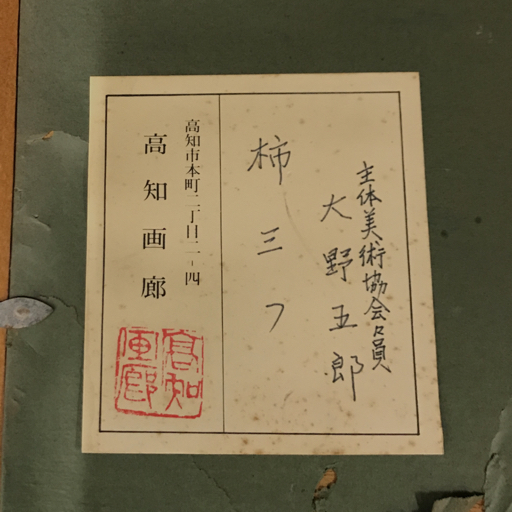 主体美術協会々員
大野五郎
柿三つ
高知市本町二丁目二-四
高知画廊
高知画廊